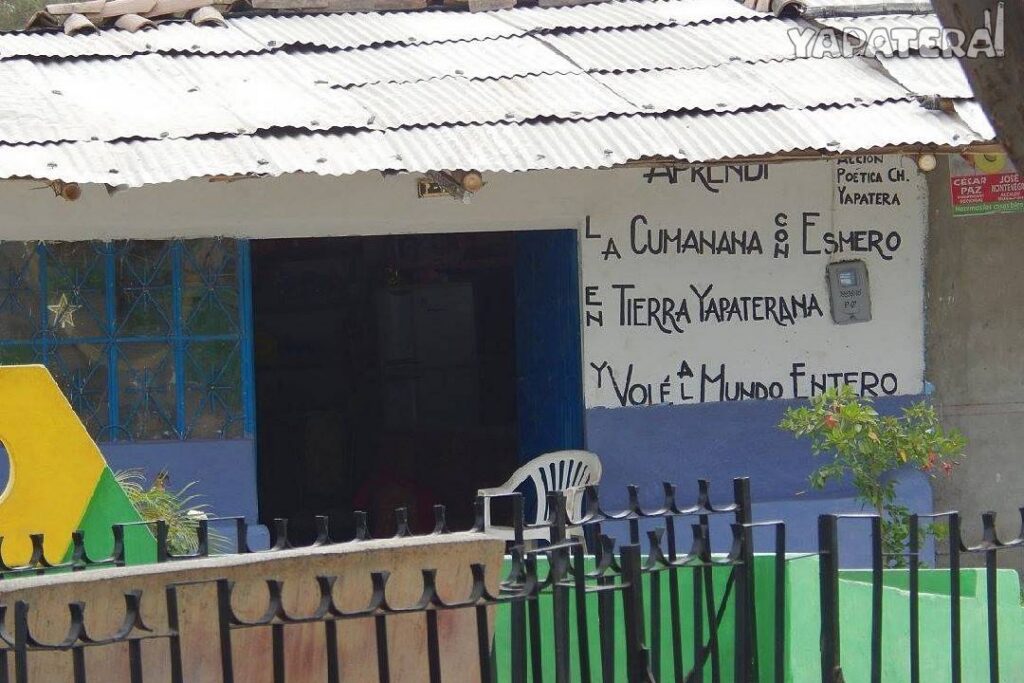 YAPATERA
APRENDÍ
LA CUMANANA CON ESMERO
EN TIERRA YAPATERANA
Y VOLÉ AL MUNDO ENTERO
ACCIÓN
POÉTICA CH.
YAPATERA
CÉSAR PAZ
JOSÉ MONTENEGRO